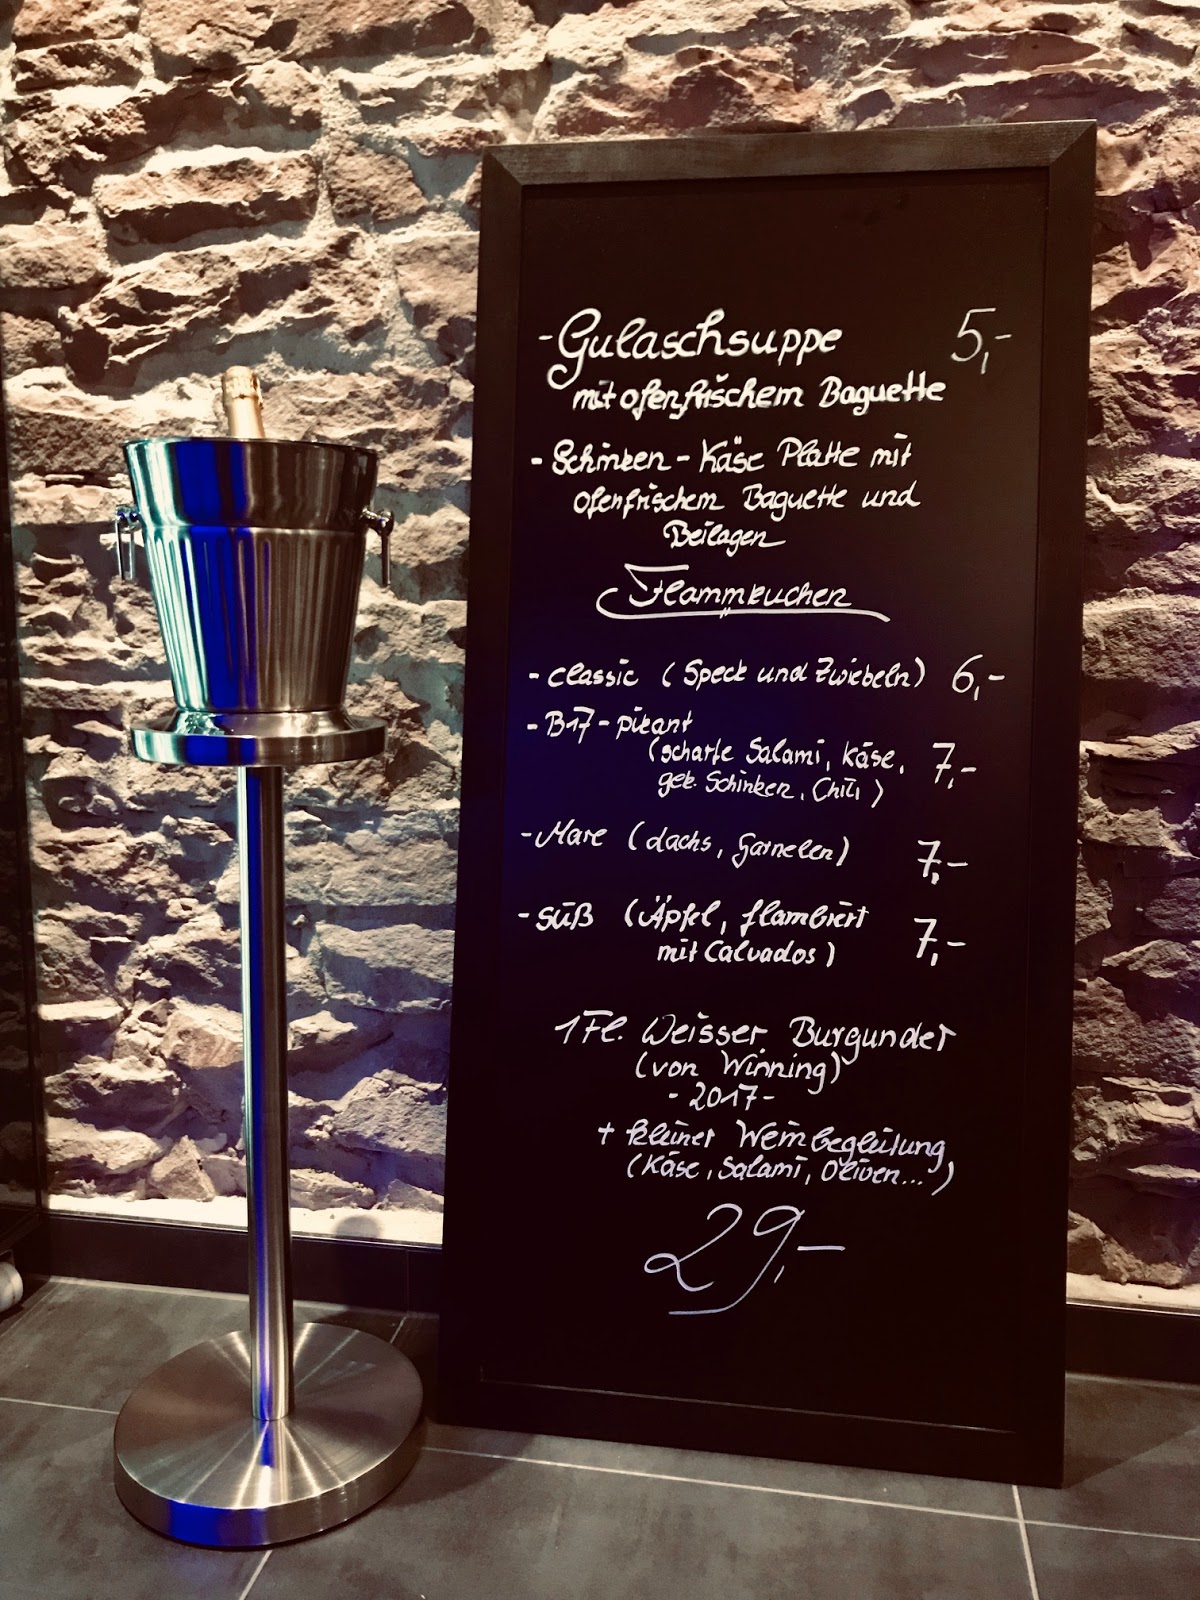 - Gulaschsuppe 5,-
mit ofenfrischem Baguette
- Schinken - Käse Platte mit
ofenfrischem Baguette und
Beilagen
Flammkuchen
- classic (Speck und Zwiebeln) 6,-
- B17 - pikant
(scharfe Salami, Käse, 7,-
gek. Schinken, Chili)
- Mare (Lachs, Garnelen) 7,-
- süß (Äpfel, flambiert 7,-
mit Calvados)
1 Fl. Weisser Burgunder
(von Winning)
- 2017 -
+ kleiner Weinbegleitung
(Käse, Salami, Oliven...)
29,-